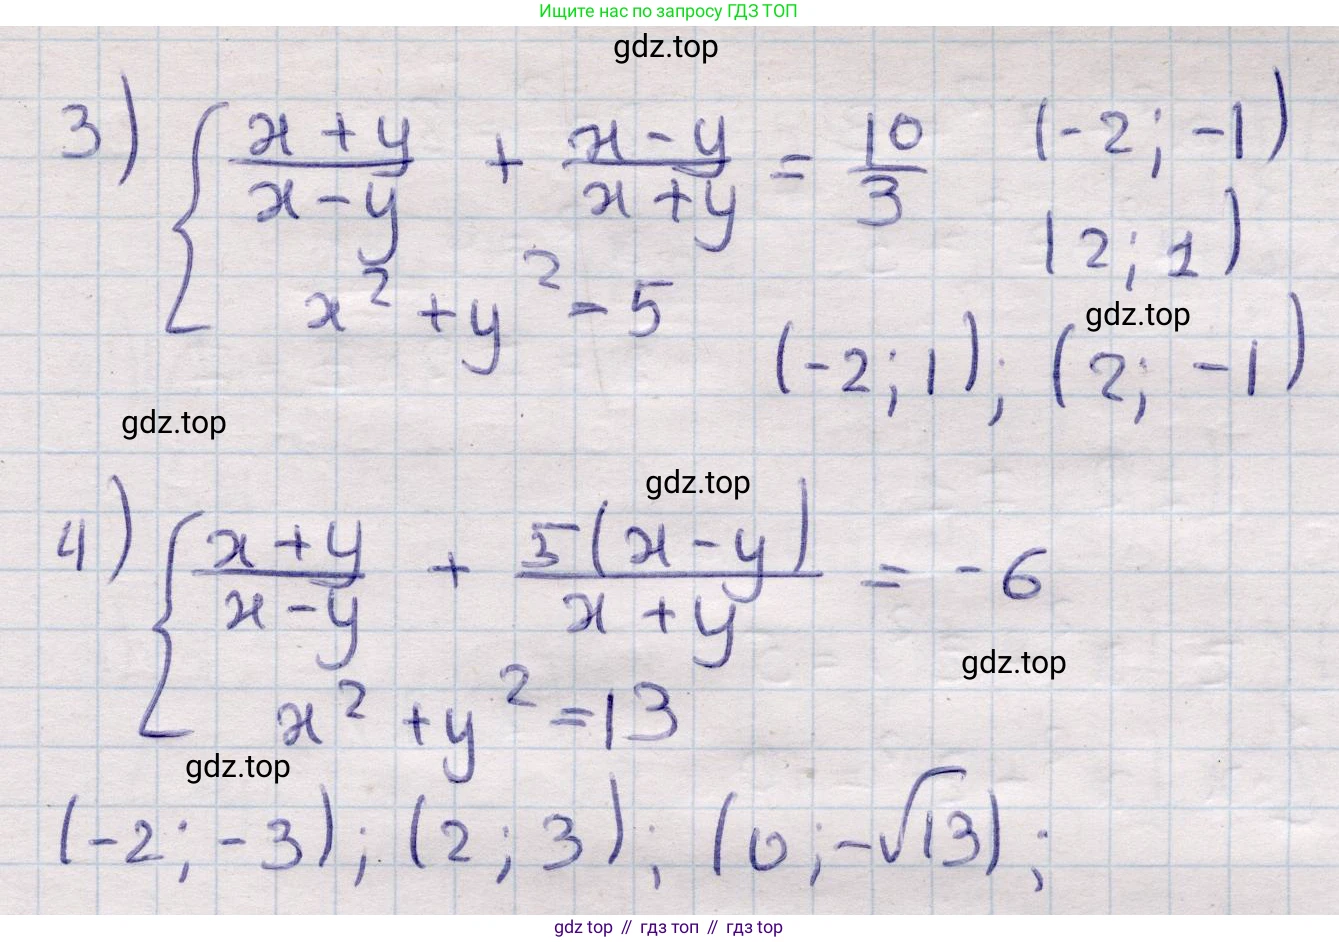 Ищите нас по запросу ГДЗ ТОП
gdz.top
3) { (x + y)/(x - y) + (x - y)/(x + y) = 10/3 (-2; -1)
x² + y² = 5 (2; 1)
gdz.top
(-2; 1); (2; -1)
gdz.top
gdz.top
4) { (x + y)/(x - y) + 5(x - y)/(x + y) = -6
gdz.top
x² + y² = 13
gdz.top
(-2; -3); (2; 3); (0; -√13);
gdz top // гдз топ // гдз top